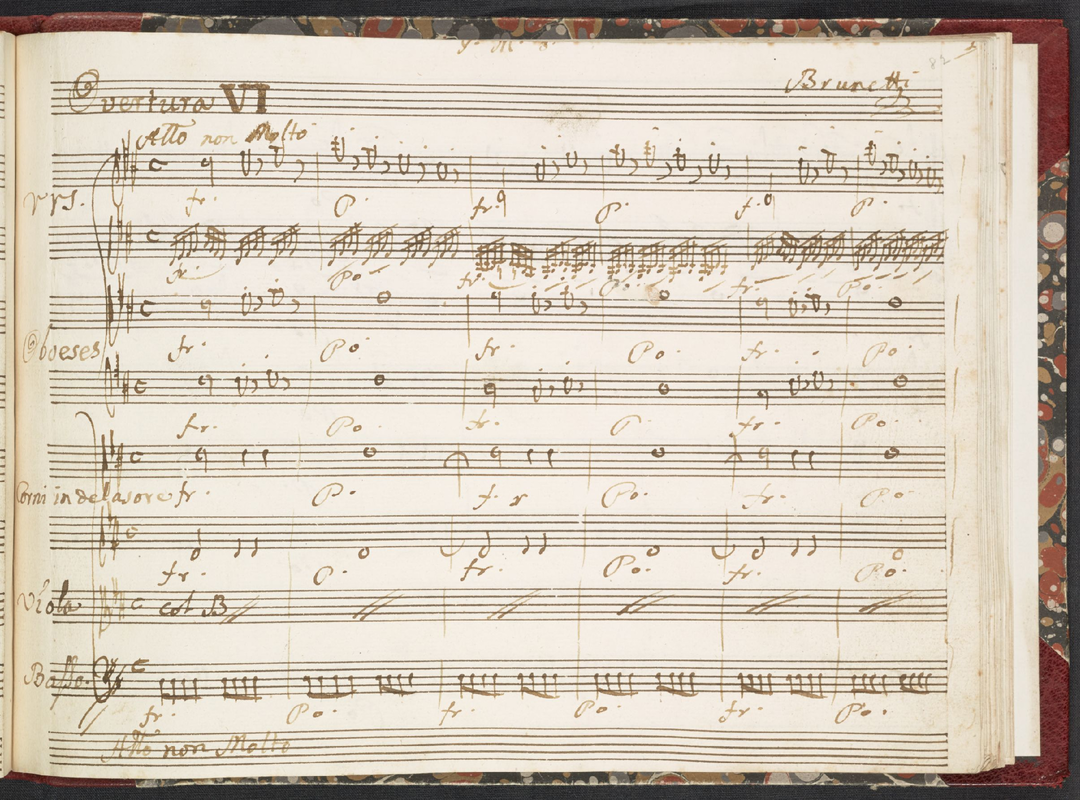 J. M. J.
82
Overtura VI
Brunetti
Allo non Molto
VVs.
fr. P. fr. P. f. P.
fr. Po fr. P. fr. Po.
Oboeses
fr. Po. fr. Po. fr. Po.
fr. Po. fr. P. fr. Po.
Corni in delasore fr. P. f. r Po. fr. Po.
fr. P. fr. Po. fr. Po.
Viola col B
Basso.
fr. Po. fr. Po. fr. Po.
Allo non Molto